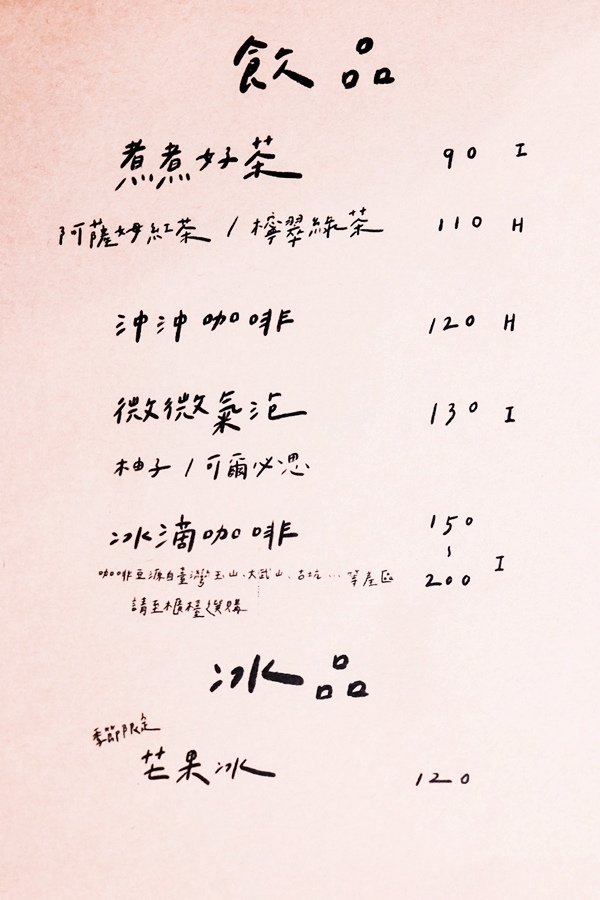 飲品
煮煮好茶 90 I
阿薩姆紅茶 / 檸翠綠茶 110 H
沖沖咖啡 120 H
微微氣泡 130 I
柚子 / 可爾必思
冰滴咖啡 150 ~ 200 I
咖啡豆源自臺灣玉山、大武山、古坑…等產區
請至櫃檯選購
冰品
季節限定
芒果冰 120